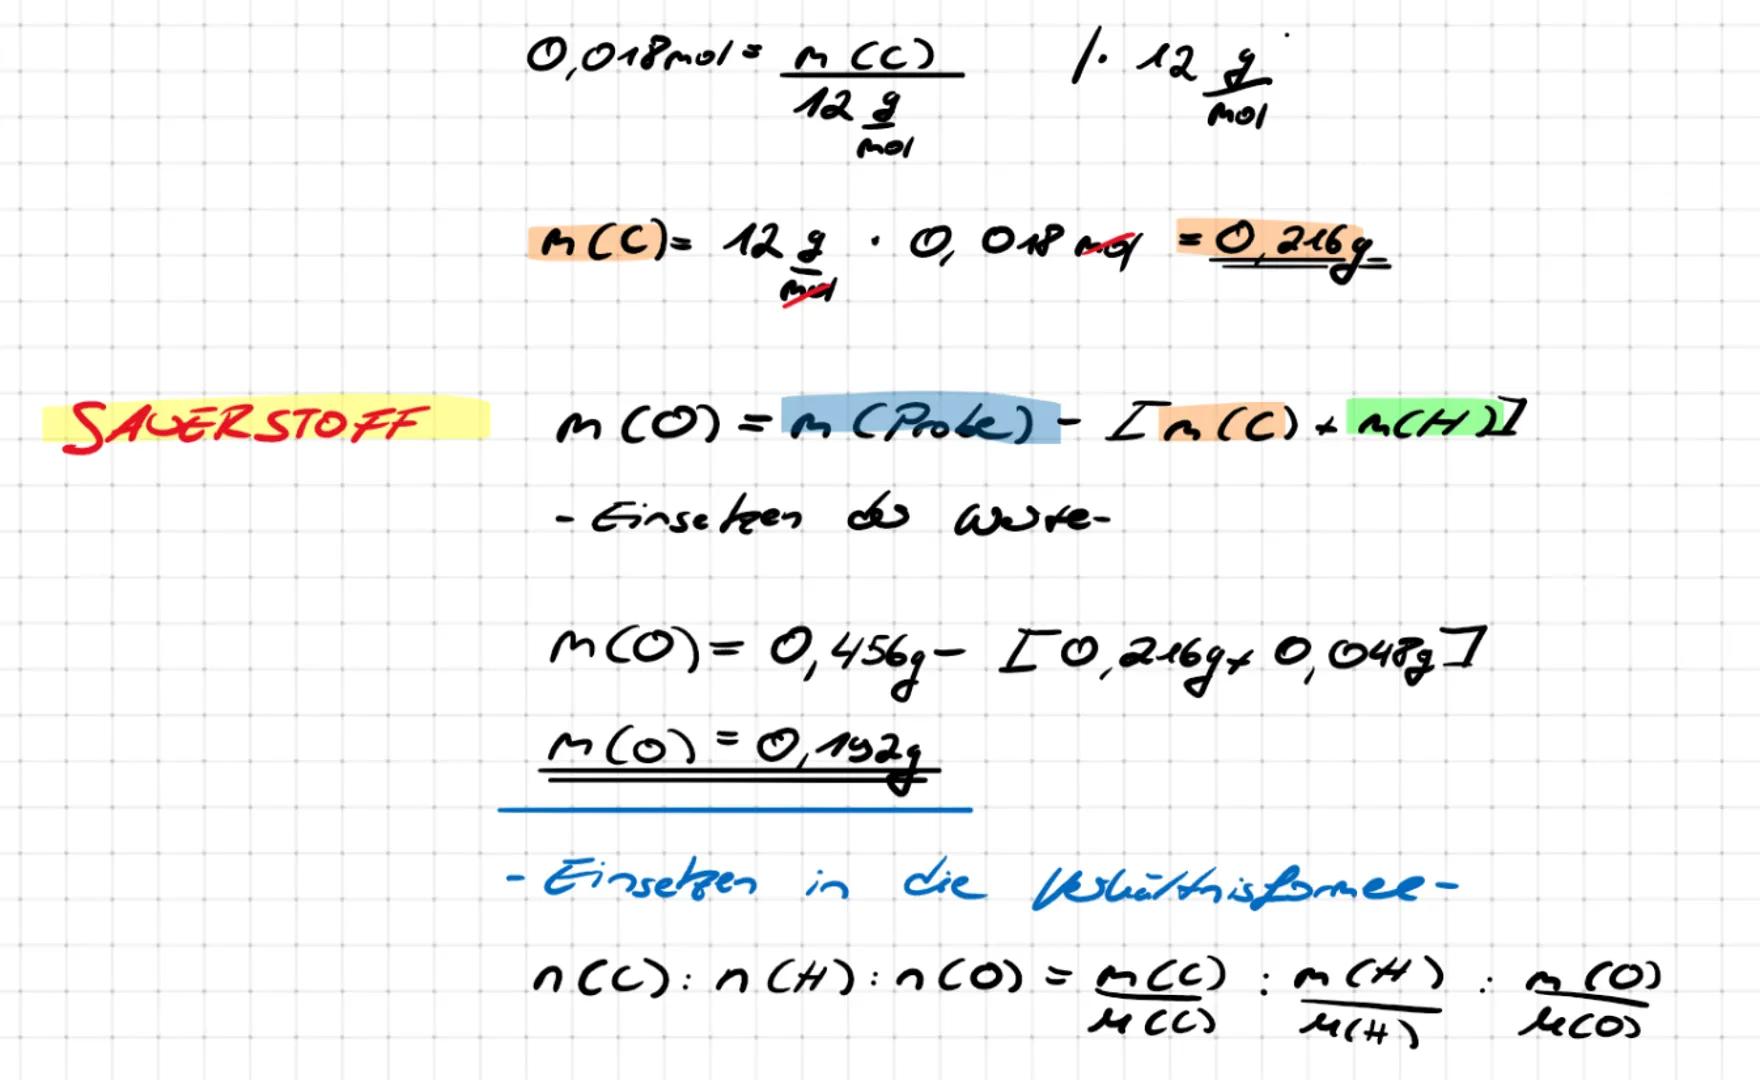 0,018mol = m(C) / 12 g/mol   /· 12 g/mol
m(C) = 12 g/mol · 0,018 mol = 0,216g
SAUERSTOFF   m(O) = m(Probe) - [m(C) + m(H)]
- Einsetzen der Werte -
m(O) = 0,456g - [0,216g + 0,048g]
m(O) = 0,192g
- Einsetzen in die Verhältnisformel -
n(C) : n(H) : n(O) = m(C)/M(C) : m(H)/M(H) : m(O)/M(O)